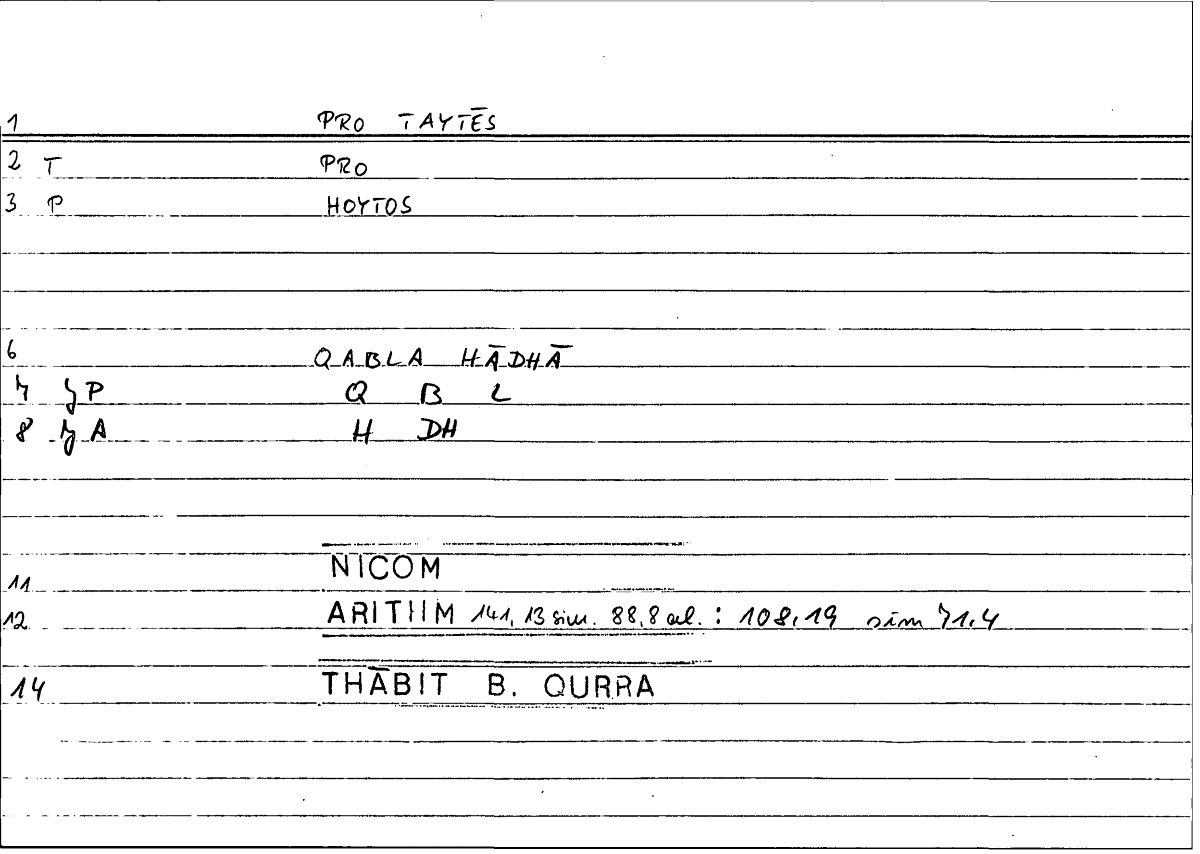 1 PRO TAYTĒS
2 T PRO
3 P HOYTOS
6 QABLA HĀDHĀ
7 P Q B L
8 A H DH
11 NICOM
12 ARITHM 141, 13 sim. 88,8 al. : 108,19 sim 71,4
14 THĀBIT B. QURRA